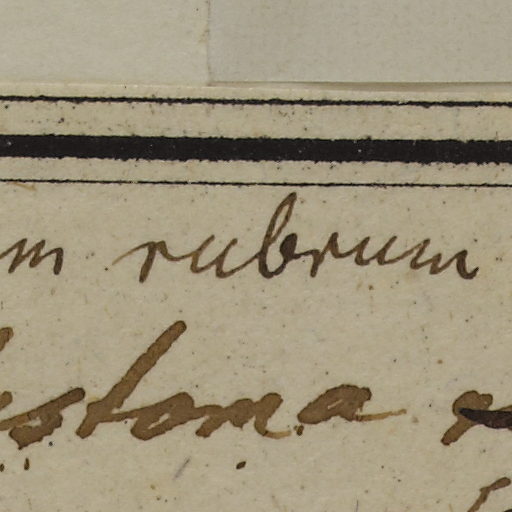 m rubrum
stoma